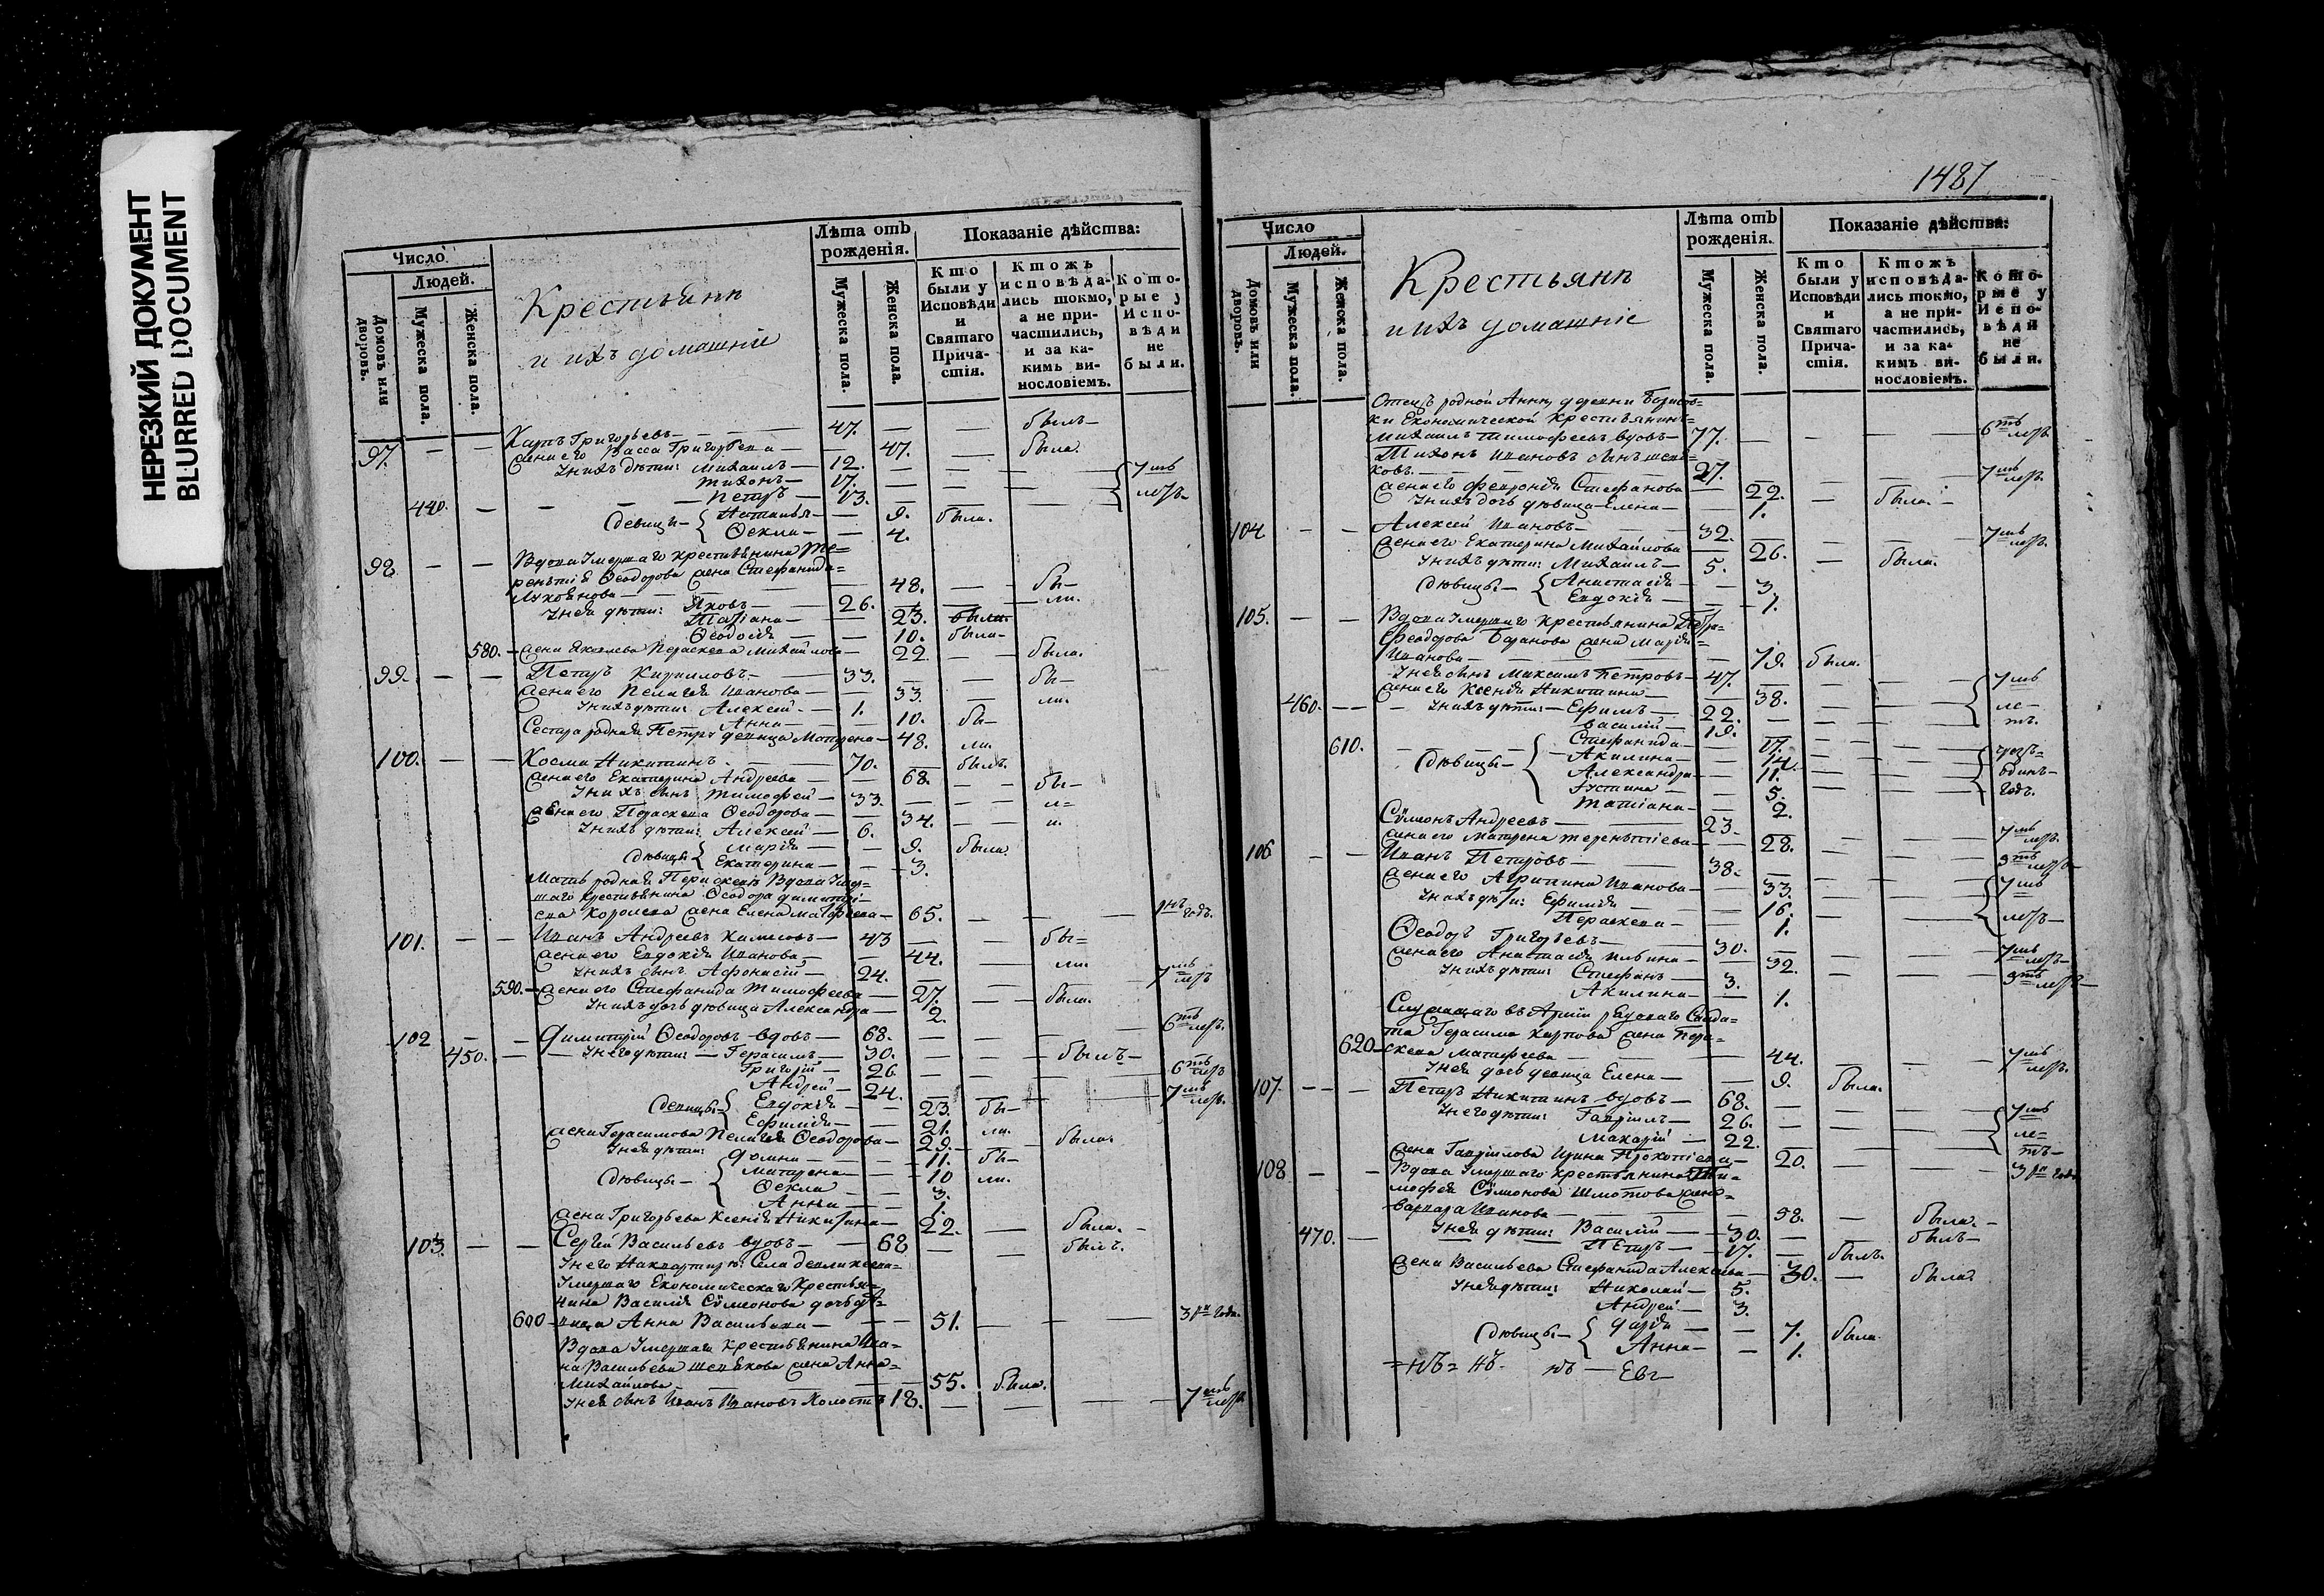 НЕРЕЗКИЙ ДОКУМЕНТ
BLURRED DOCUMENT
Число
Людей.
Домовъ или дворовъ.
Мужеска пола.
Женска пола.
Крестьянъ
и ихъ домашніе
Лѣта отъ рожденія.
Мужеска пола.
Женска пола.
Показаніе дѣйства:
Кто были у Исповѣди и Святаго Причастія.
Ктожъ исповѣдались токмо, а не причастились, и за какимъ винословіемъ.
Которые у Исповѣди не были.
97. Карпъ Григорьевъ — 47. — — былъ
жена его Васса Григорьева — 47. — была.
У нихъ дѣти: Михаилъ — 12.
Тихонъ — 17. — 7мь
440. Петръ — 13. — лѣтъ
девицы { Наталья — 9. была.
Ѳекла — 4.
98 Вдова умершаго крестьянина Те=
рентія Ѳеодорова жена Стефанида=
Лукоянова — 48. — бы-
У нея дѣти: Яковъ — 26. — ли.
Татіана — 23. была
Ѳеодосія — 10. была
580. жена Яковлева Параскева Михайлова — 22 — была.
99. Петръ Кирилловъ — 33. — бы-
жена его Пелагея Иванова — 33. — ли.
У нихъ дѣти: Алексей — 1.
Анна — 10. бы-
Сестра родная Петру девица Матрена — 48. ли.
100. Косма Никитинъ — 70. былъ.
жена его Екатерина Андреева — 68. — бы-
У нихъ сынъ Тимофей — 33. — л=
жена его Параскева Ѳеодорова — 34. — и.
У нихъ дѣти: Алексей — 6.
дѣвицы { Марія — 9. была.
Екатерина — 3.
Мать родная Параскевѣ Вдова умер=
шаго крестьянина Ѳеодора Димитрі=
ева Королева жена Елена Матфеева — 65. — 1нъ годъ.
101. Иванъ Андреевъ — 43 — бы=
жена его Евдокія Иванова — 44. — ли.
У нихъ сынъ Афонасій — 24. — 7мь лѣтъ
590. жена его Стефанида Тимофеева — 27. — была.
У нихъ дочь дѣвица Александра — 2.
102 Димитрій Ѳеодоровъ вдовъ — 68. — 6ть лѣтъ.
450. У него дѣти: Герасимъ — 30. — былъ
Григорій — 26 — 6ть лѣтъ
Андрей — 24. — 7мь лѣтъ.
девицы { Евдокія — 23. бы-
Ефимія — 21. ли.
жена Герасимова Пелагея Ѳеодорова — 29. — была.
У нея дѣти: Домна — 11. бы-
дѣвицы { Матрена — 10 ли.
Ѳекла — 3.
Анна — 1.
жена Григорьева Ксенія Никитина — 22. — была.
103. Сергей Васильевъ вдовъ — 68 — былъ.
У него на квартирѣ: Села
Умершаго Економическаго Крестья=
нина Василія Сѵмеонова дочь дѣ=
600 вица Анна Васильева — 51. — 3 ри года.
Вдова Умершаго Крестьянина Ива=
на Васильева жена Анна=
Михайлова — 55. была.
У нея сынъ Иванъ Ивановъ Холостъ 18. — 7мь лѣтъ
1487
Число
Людей.
Домовъ или дворовъ.
Мужеска пола.
Женска пола.
Крестьянъ
и ихъ домашніе
Лѣта отъ рожденія.
Мужеска пола.
Женска пола.
Показаніе дѣйства:
Кто были у Исповѣди и Святаго Причастія.
Ктожъ исповѣдались токмо, а не причастились, и за какимъ винословіемъ.
Которые у Исповѣди не были.
Отецъ родной Анны деревни Борисов=
ки Економической Крестьянинъ
Михаилъ Тимофеевъ вдовъ — 77. — 6ть лѣтъ
Тихонъ Ивановъ сынъ
ковъ. — 27. — 7мь лѣтъ.
жена его Февронія Стефанова — 22. — была.
У нихъ дочь дѣвица Елена — 1.
104 Алексей Ивановъ — 32. — 7мь лѣтъ.
жена его Екатерина Михайлова — 26. — была.
У нихъ дѣти: Михаилъ — 5.
дѣвицы { Анастасія — 3.
Евдокія — 1.
105. Вдова умершаго Крестьянина Петра
Ѳеодорова Баранова жена Марія=
Иванова — 79. была.
У нея сынъ Максимъ Петровъ — 47. — 7мь
жена его Ксенія Никитина — 38. — ле-
460. У нихъ дѣти: Ефимъ — 22. — тъ.
Василій — 19.
610. Стефанида — 17.
дѣвицы { Акилина — 14.
Александра — 11. — одинъ
Устина — 5. — годъ.
Татіана — 2.
Сѵмеонъ Андреевъ — 23. — 7мь лѣтъ.
жена его Матрена Терентіева — 28. — 9ть лѣтъ
106 Иванъ Петровъ — 38. — 7мь
жена его Агрипина Иванова — 33.
У нихъ дѣти: Ефимія — 16. — лѣтъ
Параскева — 1.
Ѳеодоръ Григорьевъ — 30. — 7мь лѣтъ
жена его Анастасія Ильина — 32. — 9ть лѣтъ
У нихъ дѣти: Стефанъ — 3.
Акилина — 1.
Служащаго въ Арміи рядскаго Салда=
та Герасима Карпова жена Пара=
620 скева Матфеева — 44. — 7мь лѣтъ.
У нея дочь девица Елена — 9. была.
107. Петръ Никитинъ вдовъ — 68. — 7мь
У него дѣти: Гаврилъ — 26. — ле=
Макарій — 22. — тъ
жена Гаврилова Ирина Прокопіева — 20. — 3 ри года
108 Вдова Умершаго крестьянина Ти=
мофея Сѵмеонова жена=
Варвара Иванова — 58. — была.
470. У нея дѣти: Василій — 30. — былъ
Петръ — 17. — былъ.
жена Васильева Стефанида Алексеева — 30. — была.
У нея дѣти: Николай — 5.
Андрей — 3.
дѣвицы { Дарія — 7. была
Анна — 1.